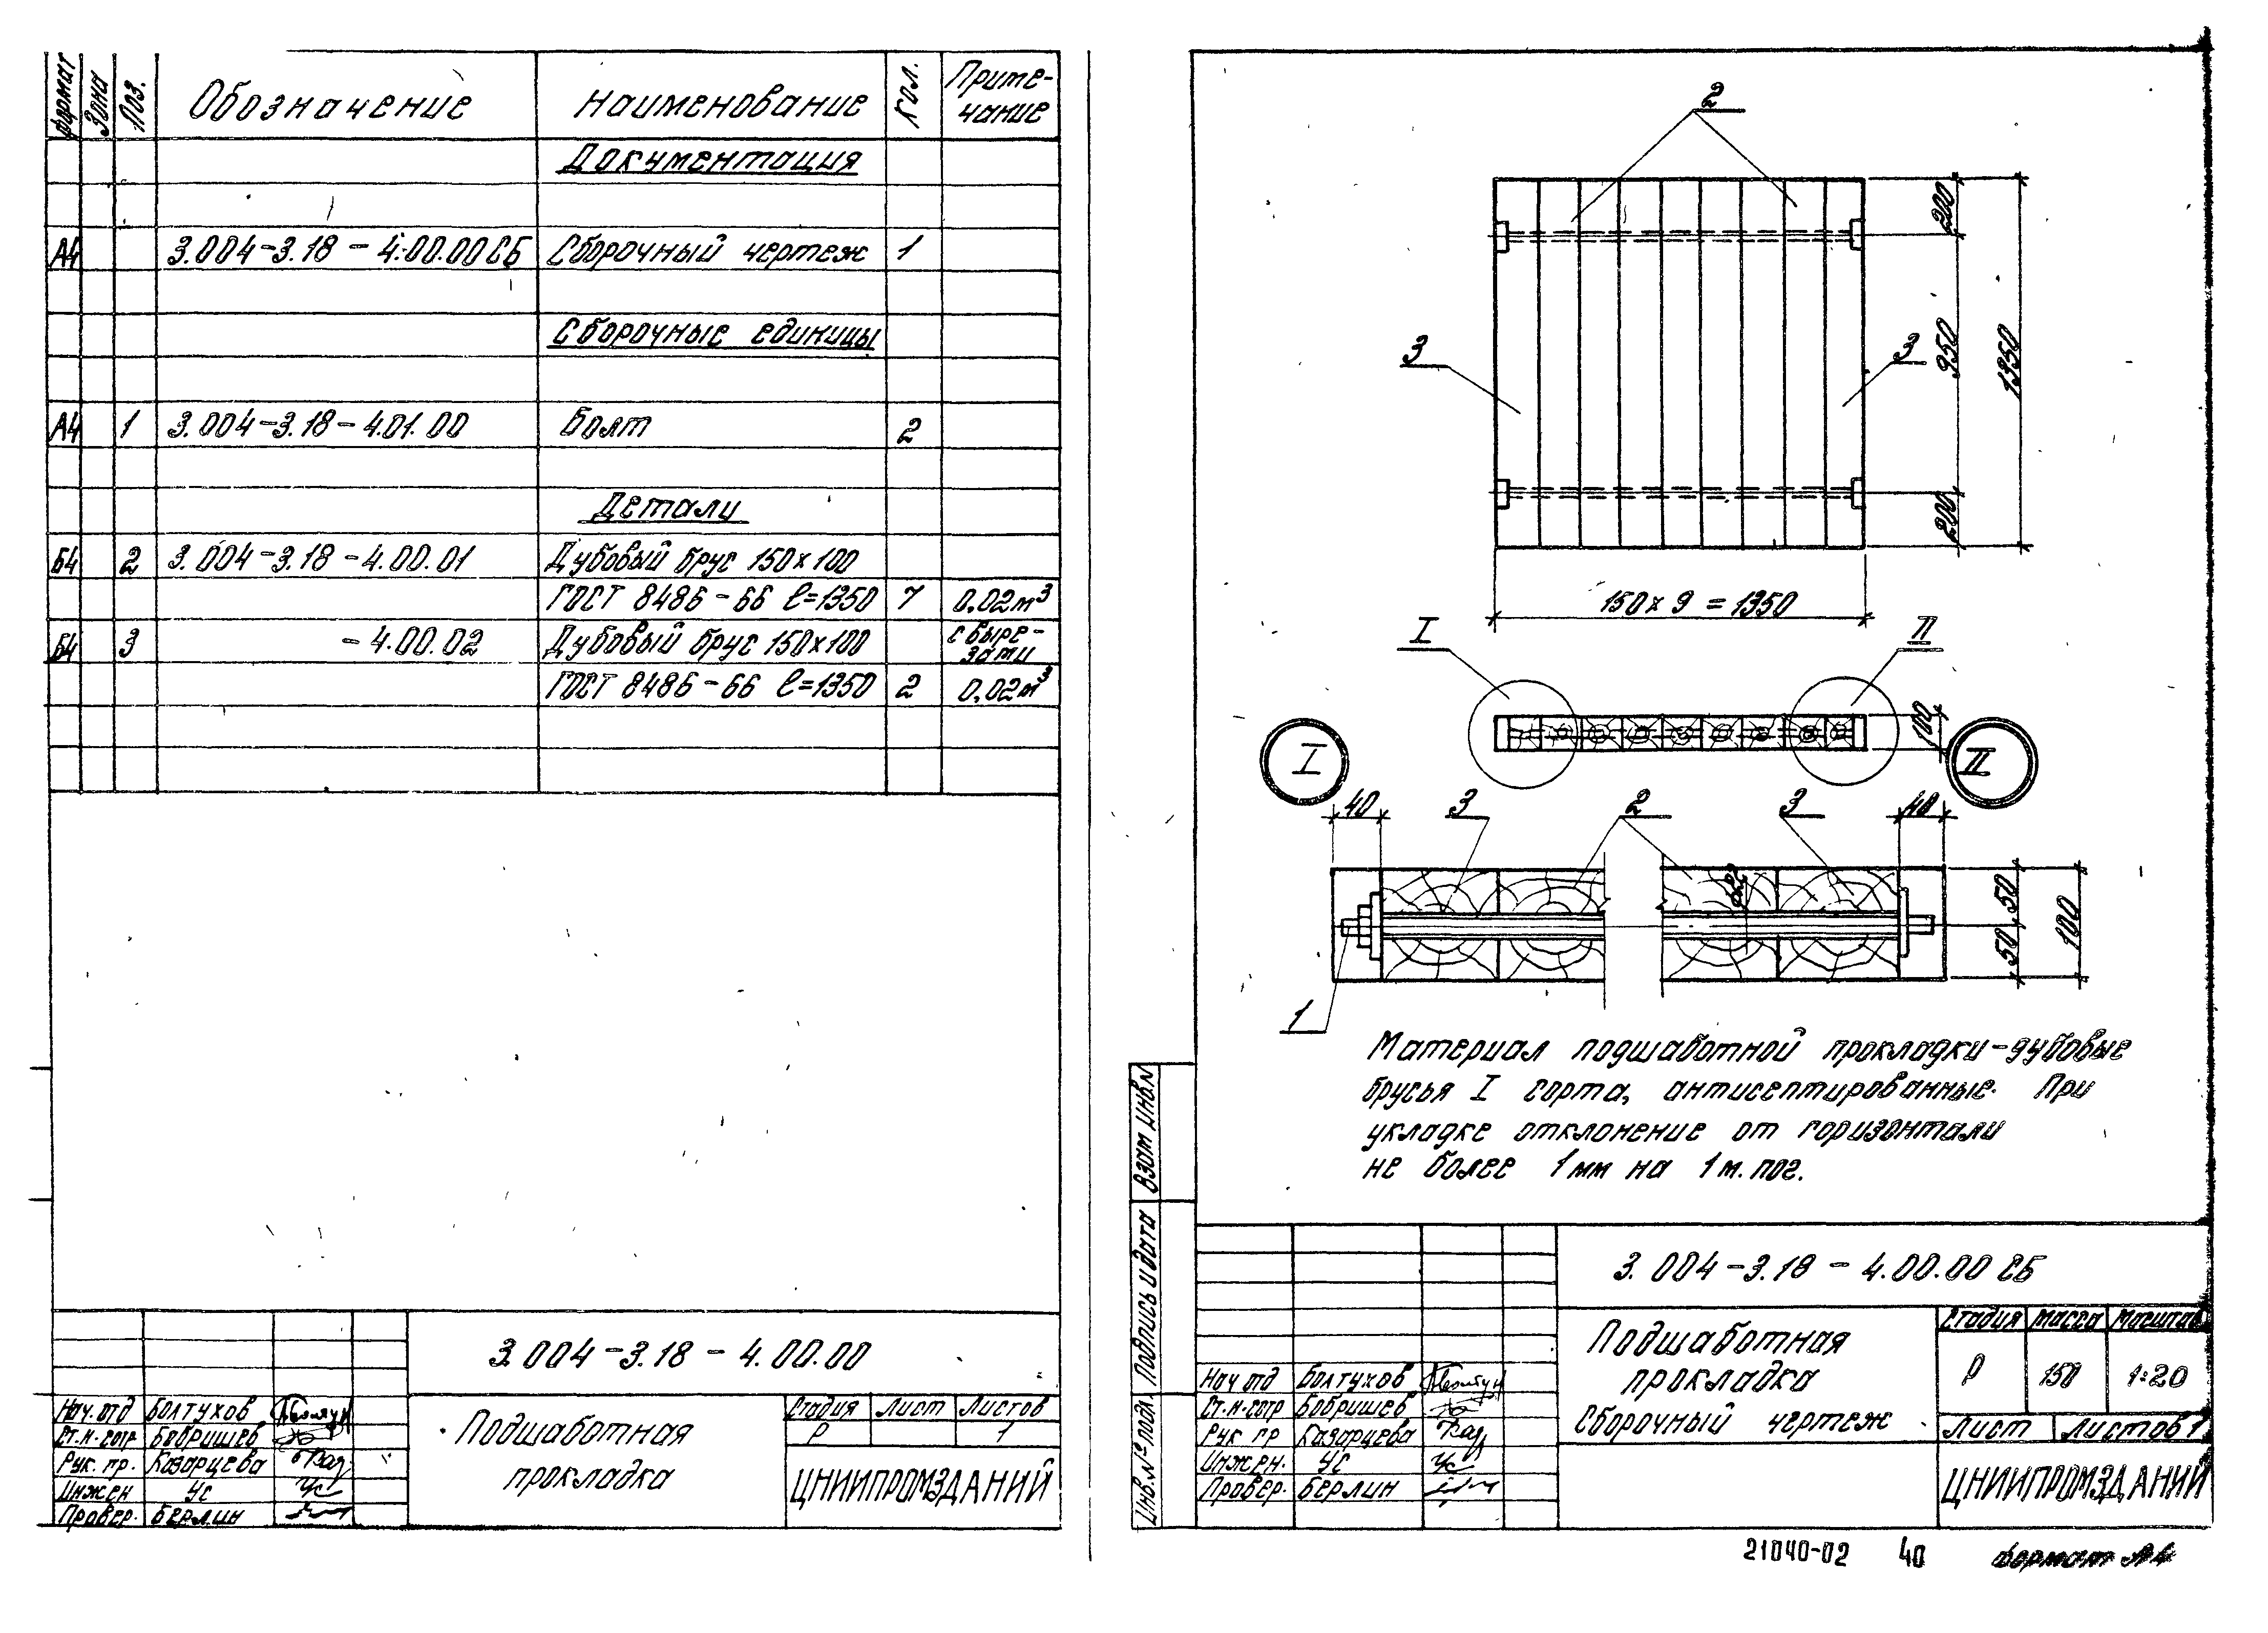 формат Зона Поз. Обозначение Наименование Кол. Приме-
чание
Документация
А4 3.004-3.18-4.00.00СБ Сборочный чертеж 1
Сборочные единицы
А4 1 3.004-3.18-4.01.00 Болт 2
Детали
Б4 2 3.004-3.18-4.00.01 Дубовый брус 150х100
ГОСТ 8486-66 ℓ=1350 7 0,02м³
Б4 3 -4.00.02 Дубовый брус 150х100 с выре-
зами
ГОСТ 8486-66 ℓ=1350 2 0,02м³
3.004-3.18-4.00.00
Нач.отд Болтухов
Ст.н.сотр Бобришев
Рук. гр. Казарцева
Инжен Ус
Провер. Берлин
Подшаботная
прокладка
Стадия Лист Листов
Р 1
ЦНИИПРОМЗДАНИЙ
2
3
3
200
950
200
1350
150х9=1350
I
II
100
I
II
40
3
2
3
40
50
50
100
1
Материал подшаботной прокладки-дубовые
брусья I сорта, антисептированные. При
укладке отклонение от горизонтали
не более 1мм на 1м.пог.
Взам инв.N
Подпись и дата
Инв.№ подл.
3.004-3.18-4.00.00 СБ
Нач отд Болтухов
Ст.н.сотр Бобришев
Рук гр Казарцева
Инжен. Ус
Провер. Берлин
Подшаботная
прокладка
Сборочный чертеж
Стадия Масса Масштаб
Р 150 1:20
Лист Листов 1
ЦНИИПРОМЗДАНИЙ
21040-02 40 формат А4